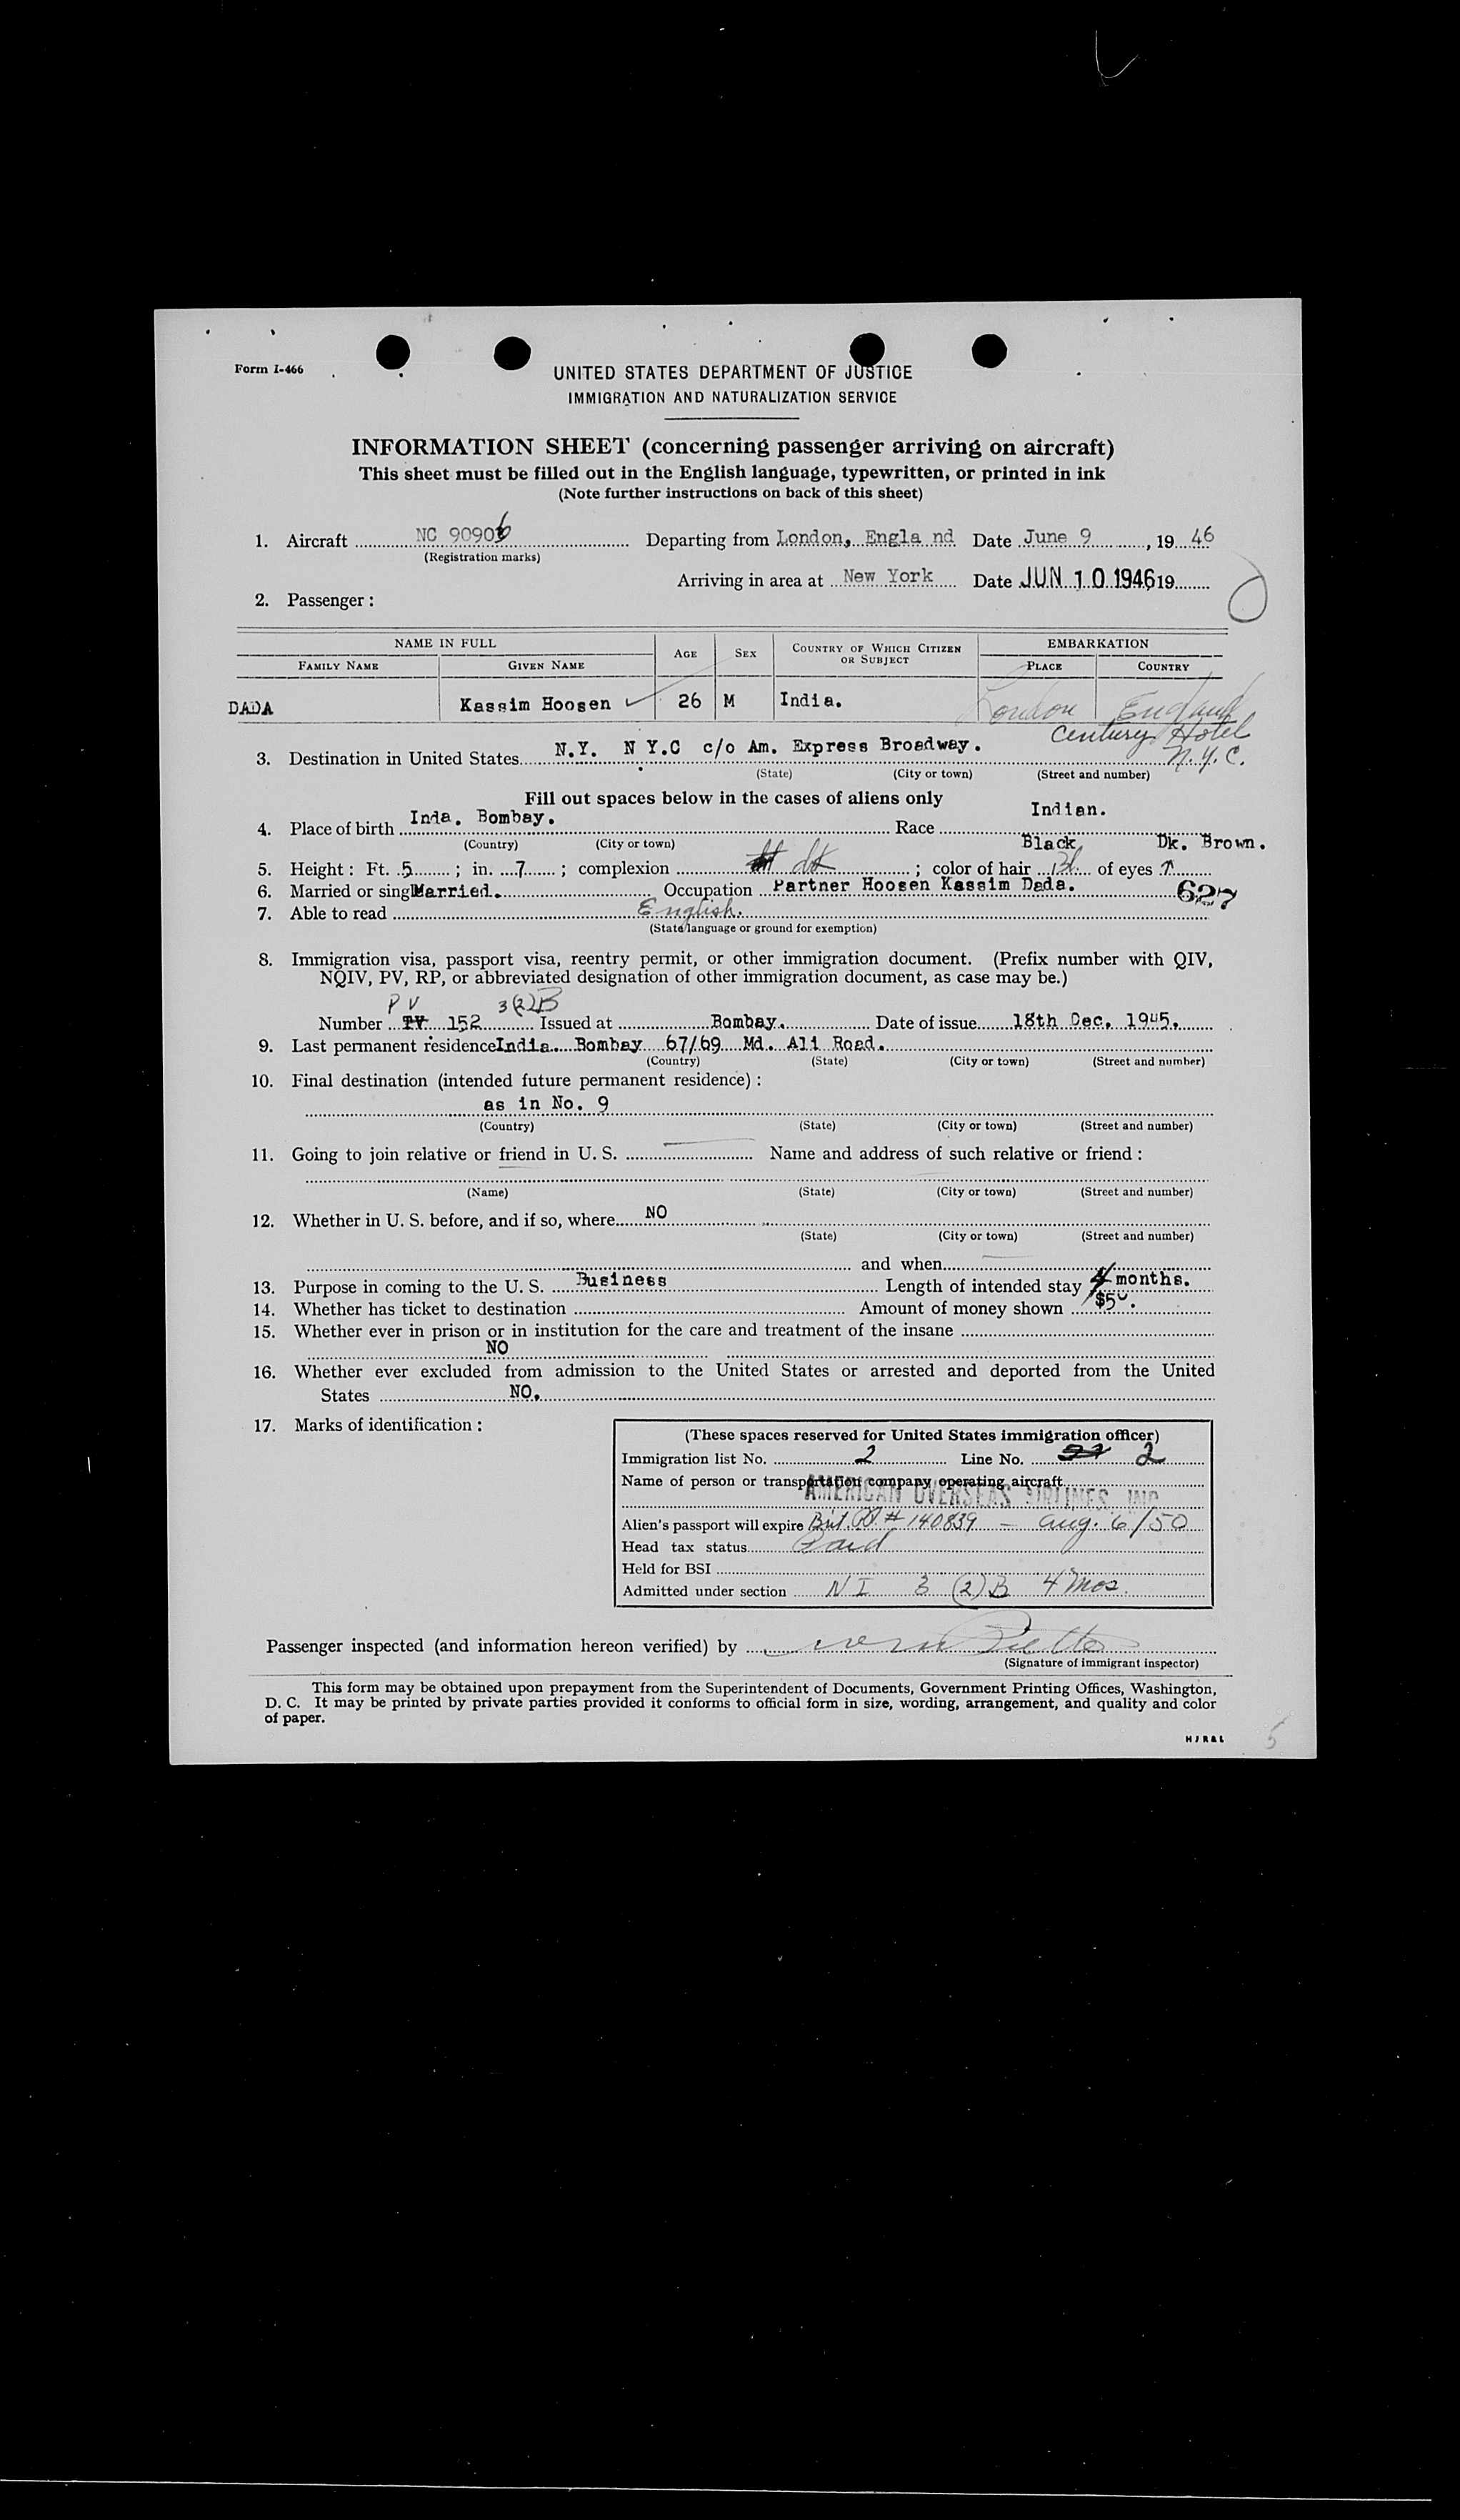 Form I-466
UNITED STATES DEPARTMENT OF JUSTICE
IMMIGRATION AND NATURALIZATION SERVICE
INFORMATION SHEET (concerning passenger arriving on aircraft)
This sheet must be filled out in the English language, typewritten, or printed in ink
(Note further instructions on back of this sheet)
1. Aircraft NC 90906 Departing from London, Engla nd Date June 9, 19 46
(Registration marks)
Arriving in area at New York Date JUN 10 1946 19
2. Passenger:
NAME IN FULL AGE SEX COUNTRY OF WHICH CITIZEN OR SUBJECT EMBARKATION
FAMILY NAME GIVEN NAME PLACE COUNTRY
DADA Kassim Hoosen 26 M India. London England
Century Hotel
N.Y.C.
3. Destination in United States N.Y. N Y.C c/o Am. Express Broadway.
(State) (City or town) (Street and number)
Fill out spaces below in the cases of aliens only
4. Place of birth Inda. Bombay. Race Indian.
(Country) (City or town) Black Dk. Brown.
5. Height: Ft. 5; in. 7; complexion dk; color of hair Bl of eyes
6. Married or single Married. Occupation Partner Hoosen Kassim Dada. 627
7. Able to read English.
(State language or ground for exemption)
8. Immigration visa, passport visa, reentry permit, or other immigration document. (Prefix number with QIV,
NQIV, PV, RP, or abbreviated designation of other immigration document, as case may be.)
PV 3(2)B
Number 152 Issued at Bombay. Date of issue 18th Dec. 1945.
9. Last permanent residence India. Bombay 67/69 Md. Ali Road.
(Country) (State) (City or town) (Street and number)
10. Final destination (intended future permanent residence):
as in No. 9
(Country) (State) (City or town) (Street and number)
11. Going to join relative or friend in U. S. Name and address of such relative or friend:
(Name) (State) (City or town) (Street and number)
12. Whether in U. S. before, and if so, where NO
(State) (City or town) (Street and number)
and when
13. Purpose in coming to the U. S. Business Length of intended stay 4 months.
14. Whether has ticket to destination Amount of money shown $50.
15. Whether ever in prison or in institution for the care and treatment of the insane
NO
16. Whether ever excluded from admission to the United States or arrested and deported from the United
States NO.
17. Marks of identification:
(These spaces reserved for United States immigration officer)
Immigration list No. 2 Line No. 2
Name of person or transportation company operating aircraft
AMERICAN OVERSEAS AIRLINES, INC
Alien's passport will expire Brit. PP. # 140839 — Aug. 6/50
Head tax status Paid
Held for BSI
Admitted under section NI 3 (2) B 4 Mos.
Passenger inspected (and information hereon verified) by
(Signature of immigrant inspector)
This form may be obtained upon prepayment from the Superintendent of Documents, Government Printing Offices, Washington,
D. C. It may be printed by private parties provided it conforms to official form in size, wording, arrangement, and quality and color
of paper.
H J R & L
5